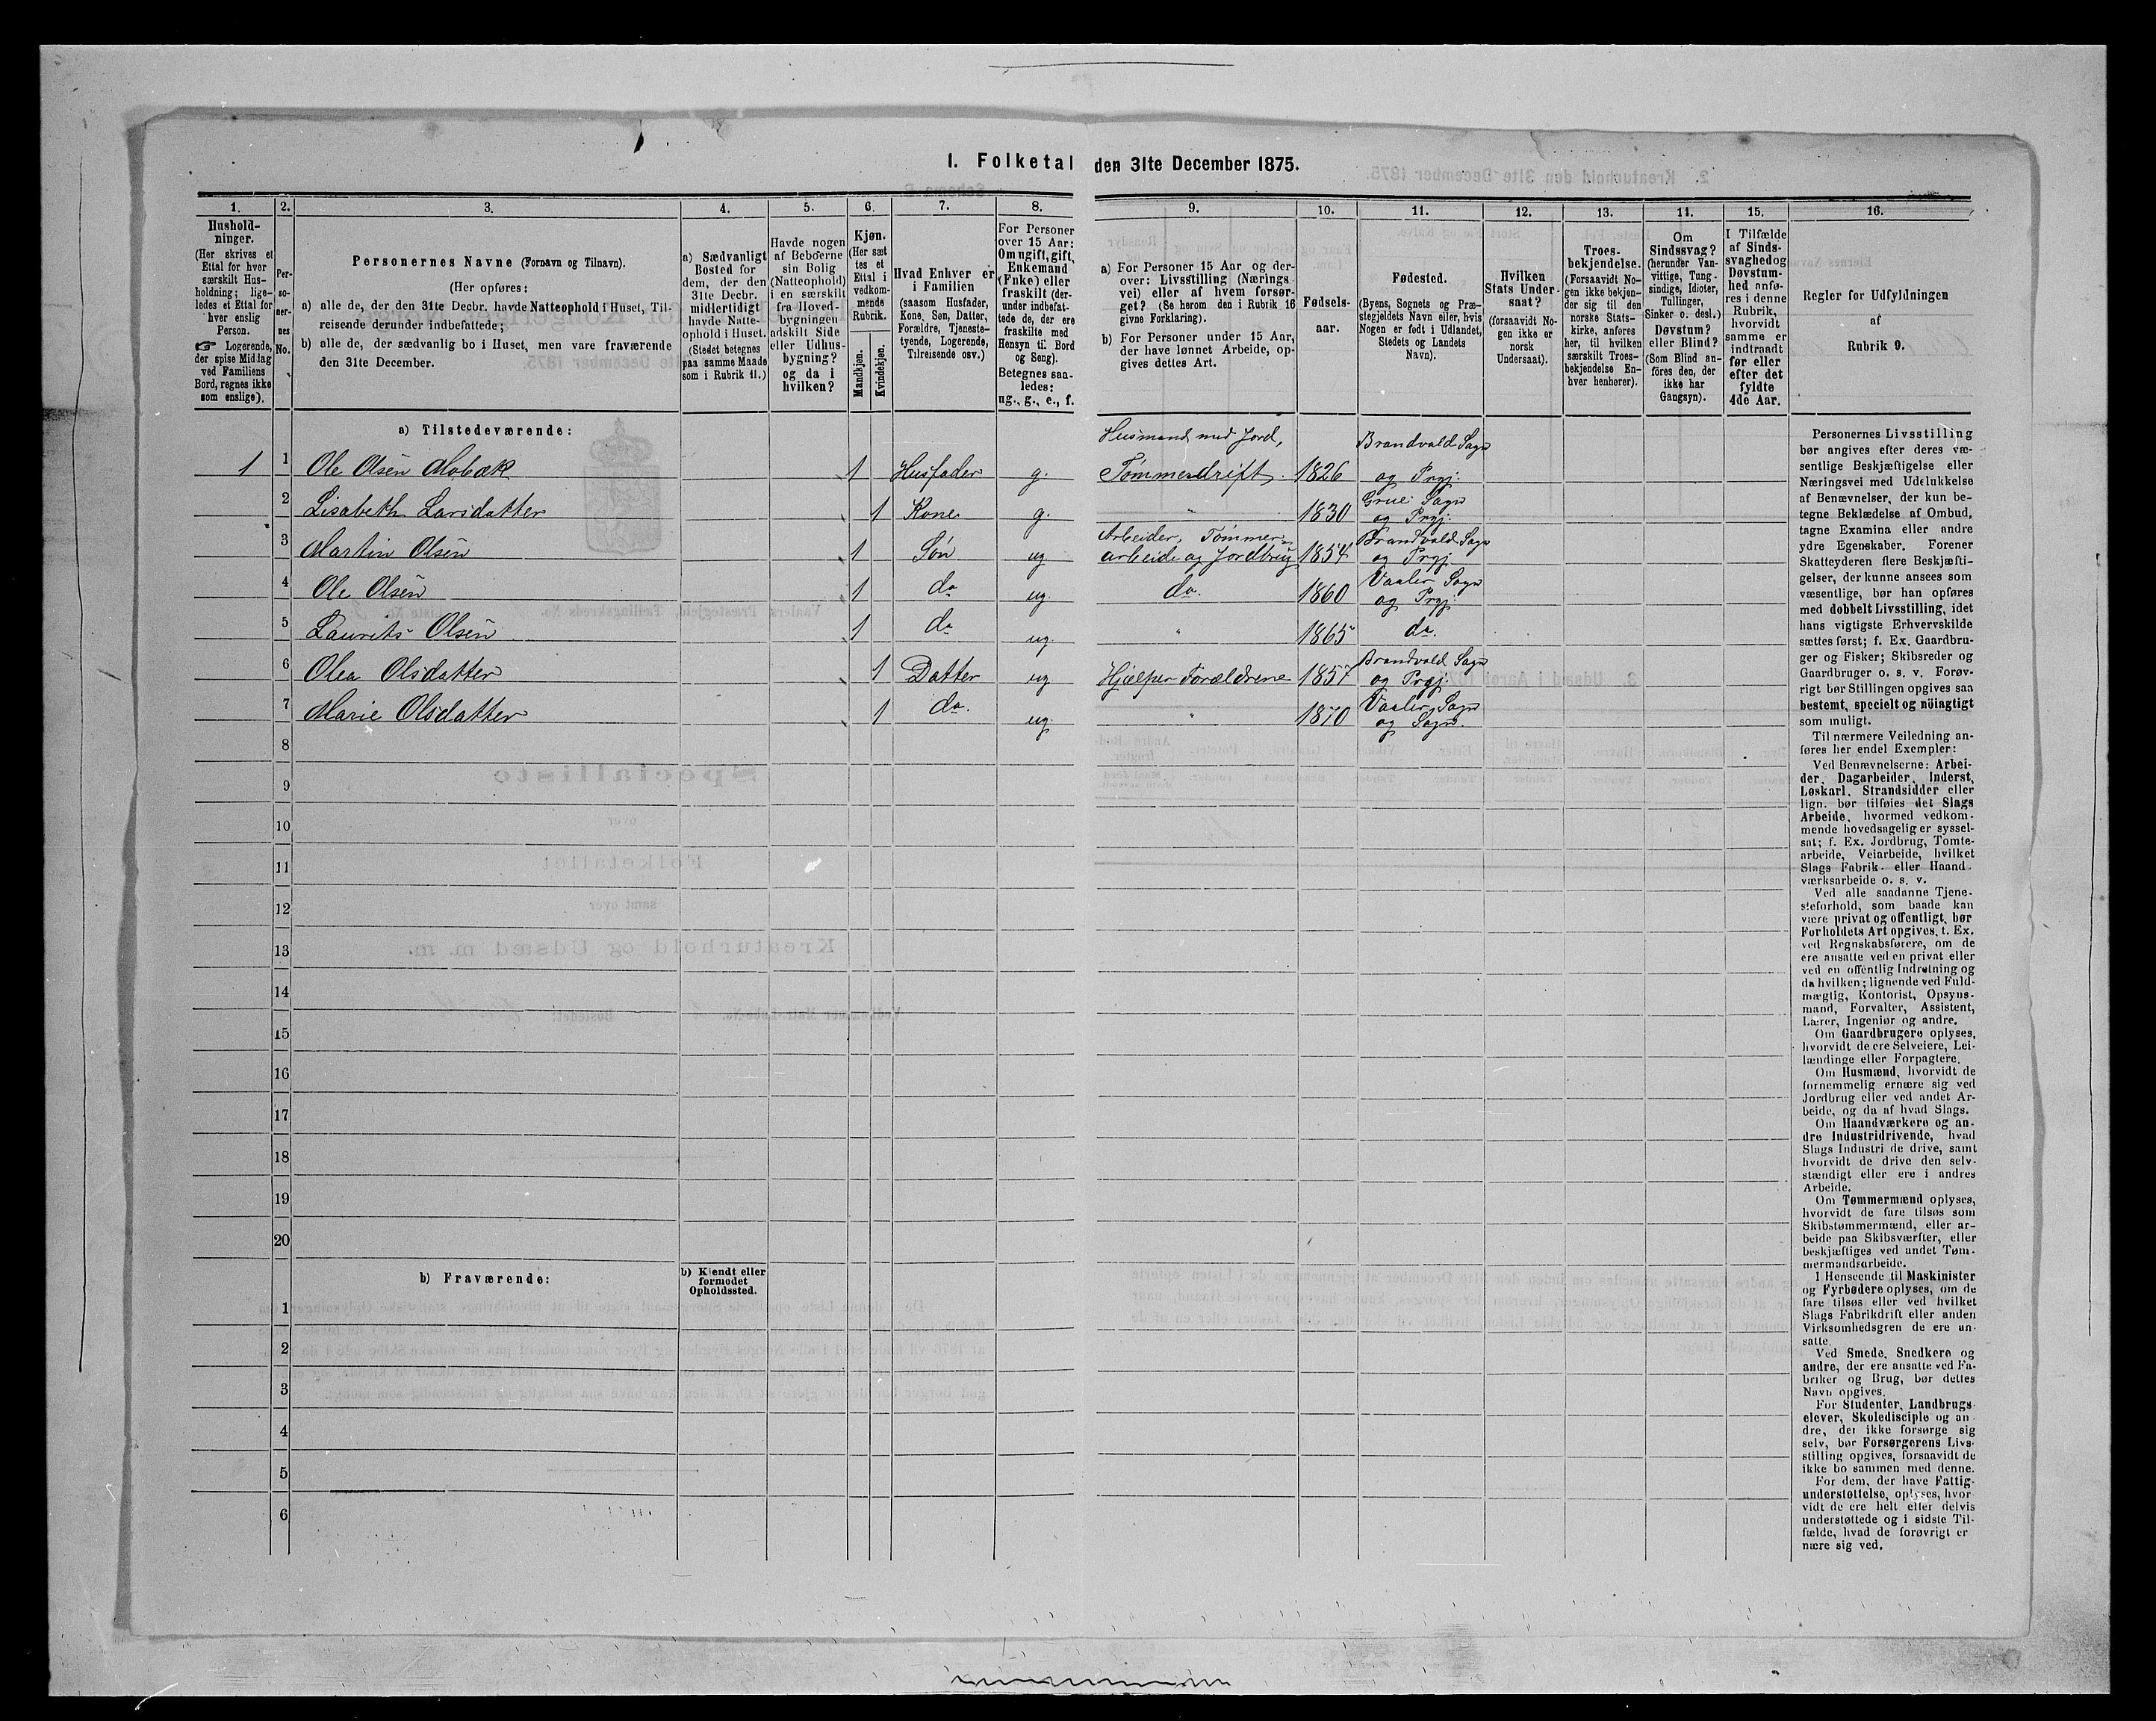 I. Folketal den 31te December 1875.
1. 2. 3. 4. 5. 6. 7. 8. 9. 10. 11. 12. 13. 14. 15. 16.
Hushold-
ninger.
(Her skrives et
Ettal for hver
særskilt Hus-
holdning; lige-
ledes et Ettal for
hver enslig
Person.
☞ Logerende,
der spise Middag
ved Familiens
Bord, regnes ikke
som enslige).
Per-
so-
ner-
nes
No.
Personernes Navne (Fornavn og Tilnavn).
(Her opføres:
a) alle de, der den 31te Decbr. havde Natteophold i Huset, Til-
reisende derunder indbefattede;
b) alle de, der sædvanlig bo i Huset, men vare fraværende
den 31te December.
a) Sædvanligt
Bosted for
dem, der den
31te Decbr.
midlertidigt
havde Natte-
ophold i Huset.
(Stedet betegnes
paa samme Maade
som i Rubrik 11.)
Havde nogen
af Beboerne
sin Bolig
(Natteophold)
i en særskilt
fra Hoved-
bygningen
adskilt Side
eller Udhus-
bygning?
og da i
hvilken?
Kjøn.
(Her sæt
tes et
Ettal i
vedkom-
mende
Rubrik.
Mandkjøn.
Kvindekjøn.
Hvad Enhver er
i Familien
(saasom Husfader,
Kone, Søn, Datter,
Forældre, Tjeneste-
tyende, Logerende,
Tilreisende osv.)
For Personer
over 15 Aar:
Om ugift, gift,
Enkemand
(Enke) eller
fraskilt (der-
under indbefat-
tede de, der ere
fraskilte med
Hensyn til Bord
og Seng).
Betegnes saa-
ledes:
ug., g., e., f.
a) For Personer 15 Aar og der-
over: Livsstilling (Nærings
vei) eller af hvem forsør-
get? (Se herom den i Rubrik 16
givne Forklaring).
b) For Personer under 15 Aar,
der have lønnet Arbeide, op-
gives dettes Art.
Fødsels-
aar.
Fødested.
(Byens, Sognets og Præ-
stegjeldets Navn eller, hvis
Nogen er født i Udlandet,
Stedets og Landets
Navn).
Hvilken
Stats Under-
saat?
(forsaavidt No-
gen ikke er
norsk
Undersaat).
Troes-
bekjendelse.
(Forsaavidt No-
gen ikke bekjen-
der sig til den
norske Stats-
kirke, anføres
her, til hvilken
særskilt Troes-
bekjendelse En-
hver henhører).
Om
Sindssvag?
(herunder Van-
vittige, Tung-
sindige, Idioter,
Tullinger,
Sinker o. desl.)
Døvstum?
eller Blind?
(Som Blind an-
føres den, der
ikke har
Gangsyn).
I Tilfælde
af Sinds-
svaghedog
Døvstum-
hed anfø-
res i denne
Rubrik,
hvorvidt
samme er
indtraadt
før eller
efter det
fyldte
4de Aar.
Regler for Udfyldningen
af
Rubrik 9.
a) Tilstedeværende:
1 1 Ole Olsen Mobæk 1 Husfader g. Husmand med Jord, Tømmerdrift. 1826 Brandvold Sogn og Prgj.
2 Lisabeth Larsdatter 1 Kone g. " 1830 Grue Sogn og Prgj.
3 Martin Olsen 1 Søn ug Arbeider, Tømmer-arbeide og Jordbrug 1854 Brandvold Sogn og Prgj.
4 Ole Olsen 1 do ug. do. 1860 Vaaler Sogn og Prgj.
5 Laurits Olsen 1 do ug. " 1865 do.
6 Olea Olsdatter 1 Datter ug Hjælper Forældrene 1857 Brandvold Sogn og Prgj.
7 Marie Olsdatter 1 do. ug. " 1870 Vaaler Sogn og Sogn.
8
9
10
11
12
13
14
15
16
17
18
19
20
b) Fraværende:
b) Kjendt eller
formodet
Opholdssted.
1
2
3
4
5
6
Personernes Livsstilling
bør angives efter deres væ-
sentlige Beskjæftigelse eller
Næringsvei med Udelukkelse
af Benævnelser, der kun be-
tegne Beklædelse af Ombud,
tagne Examina eller andre
ydre Egenskaber. Forener
Skatteyderen flere Beskjæfti-
gelser, der kunne ansees som
væsentlige, bør han opføres
med dobbelt Livsstilling, idet
hans vigtigste Erhvervskilde
sættes først; f. Ex. Gaardbru-
ger og Fisker; Skibsreder og
Gaardbruger o. s. v. Forøv-
rigt bør Stillingen opgives saa
bestemt, specielt og nöiagtigt
som muligt.
Til nærmere Veiledning an-
føres her endel Exempler:
Ved Benævnelserne: Arbei-
der, Dagarbeider, Inderst,
Løskarl, Strandsidder eller
lign. bør tilføies det Slags
Arbeide, hvormed vedkom-
mende hovedsagelig er syssel-
sat; f. Ex. Jordbrug, Tomte-
arbeide, Veiarbeide, hvilket
Slags Fabrik- eller Haand-
værksarbeide o. s. v.
Ved alle saadanne Tjene-
steforhold, som baade kan
være privat og offentligt, bør
Forholdets Art opgives, t. Ex.
ved Regnskabsførere, om de
ere ansatte ved en privat eller
ved en offentlig Indretning og
da hvilken; lignende ved Fuld-
mægtig, Kontorist, Opsyns-
mand, Forvalter, Assistent,
Lærer, Ingeniør og andre.
Om Gaardbrugere oplyses,
hvorvidt de ere Selveiere, Lei-
lændinge eller Forpagtere.
Om Husmænd, hvorvidt de
fornemmelig ernære sig ved
Jordbrug eller ved andet Ar-
beide, og da af hvad Slags.
Om Haandværkere og an-
dre Industridrivende, hvad
Slags Industri de drive, samt
hvorvidt de drive den selv-
stændigt eller ere i andres
Arbeide.
Om Tømmermænd oplyses,
hvorvidt de fare tilsøs som
Skibstømmermænd, eller ar-
beide paa Skibsværfter, eller
beskjæftiges ved andet Tøm-
mermandsarbeide.
I Henseende til Maskinister
og Fyrbødere oplyses, om de
fare tilsøs eller ved hvilket
Slags Fabrikdrift eller anden
Virksomhedsgren de ere an-
satte.
Ved Smede, Snedkere og
andre, der ere ansatte ved Fa-
briker og Brug, bør dettes
Navn opgives.
For Studenter, Landbrugs-
elever, Skoledisciple og an-
dre, der ikke forsørge sig
selv, bør Forsørgerens Livs-
stilling opgives, forsaavidt de
ikke bo sammen med denne.
For dem, der have Fattig-
understøttelse, oplyses, hvor-
vidt de ere helt eller delvis
understøttede og i sidste Til-
fælde, hvad de forøvrigt er
nære sig ved.